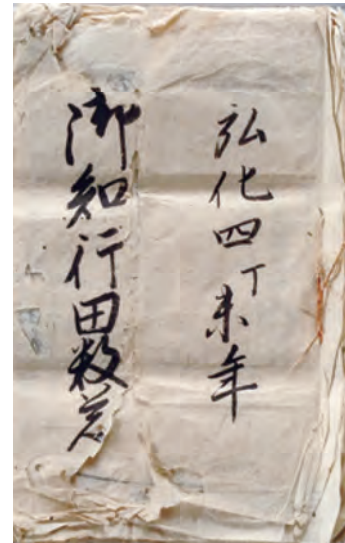 弘化四丁未年
御知行田数差